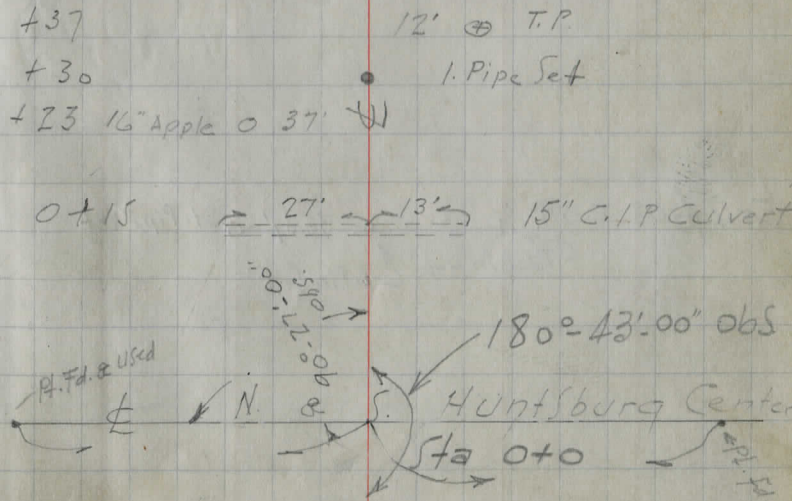 +37 12' T.P.
+30 1. Pipe Set
+23 16" Apple 0 37'
0+15 27' 13' 15" C.I.P Culvert
90°-27'-00" obs.
180°-43'-00" obs
Pt. Fd. & used
℄ N. & S. Huntsburg Center
Sta 0+0
Pt. Fd